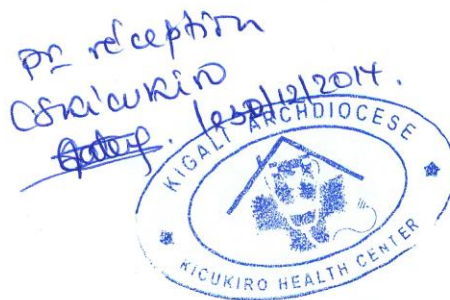 pr réception
CSKicukiro
12/2014.
KIGALI ARCHDIOCESE
KICUKIRO HEALTH CENTER